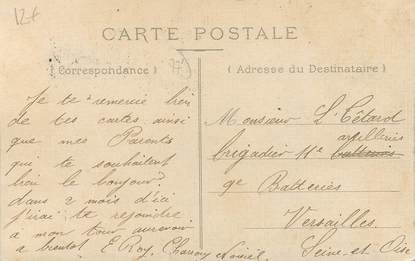 12f
CARTE POSTALE
(Correspondance)
(Adresse du Destinataire)
Je te remercie bien
de tes cartes ainsi
que mes Parents
qui te souhaitent
bien le bonjour.
dans 2 mois d'ici
j'irai te rejoindre
a mon tour aurevoir
a bientot E Roy,
Monsieur L. Cétard
artilleries
brigadier
9e Batteries
Versailles
Seine-et-Oise